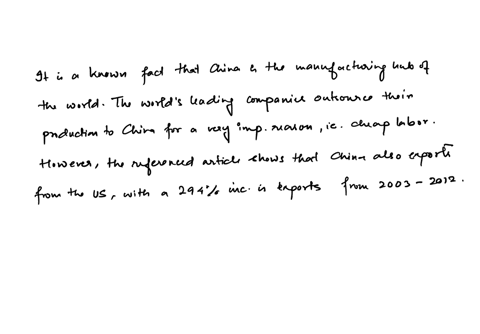 It is a known fact that China is the manufacturing hub of
the world. The world's leading companies outsource their
production to China for a very imp. reason, ie. cheap labor.
However, the referenced article shows that China also exports
from the US, with a 294% inc. in exports from 2003 - 2012.